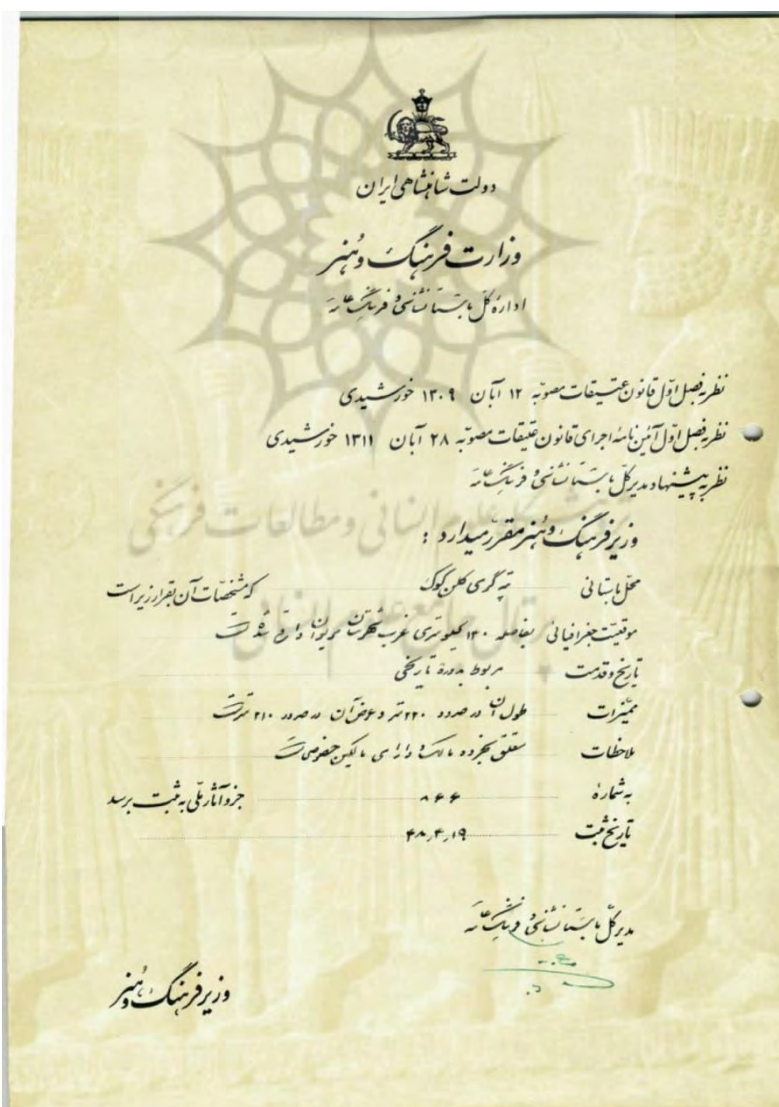 دولت شاهنشاهی ایران
وزارت فرهنگ و هنر
اداره کل باستانشناسی و فرهنگ عامه
نظر به فصل اول قانون عتیقات مصوبه ۱۲ آبان ۱۳۰۹ خورشیدی
نظر به فصل اول آئین نامه اجرای قانون عتیقات مصوبه ۲۸ آبان ۱۳۱۱ خورشیدی
نظر به پیشنهاد مدیر کل باستانشناسی و فرهنگ عامه
وزیر فرهنگ و هنر مقرر میدارد :
محل باستانی تپه گری کلن کوک که مشخصات آن بقرار زیر است
موقعیت جغرافیائی بفاصله ۱۳۰ کیلومتری غرب شهرستان مریوان واقع شده است
تاریخ و قدمت مربوط بدوره تاریخی
ممیزات طول آن در حدود ۲۲۰ متر و عرض آن در حدود ۲۱۰ متر است
ملاحظات متعلق بخرده مالک و دارای مالکین خصوصی است
به شماره ۸۶۶ جزو آثار ملی به ثبت برسد
تاریخ ثبت ۴۸٫۴٫۱۹
مدیر کل باستانشناسی و فرهنگ عامه
وزیر فرهنگ و هنر
علوم انسانی و مطالعات فرهنگی
جامع علوم انسانی